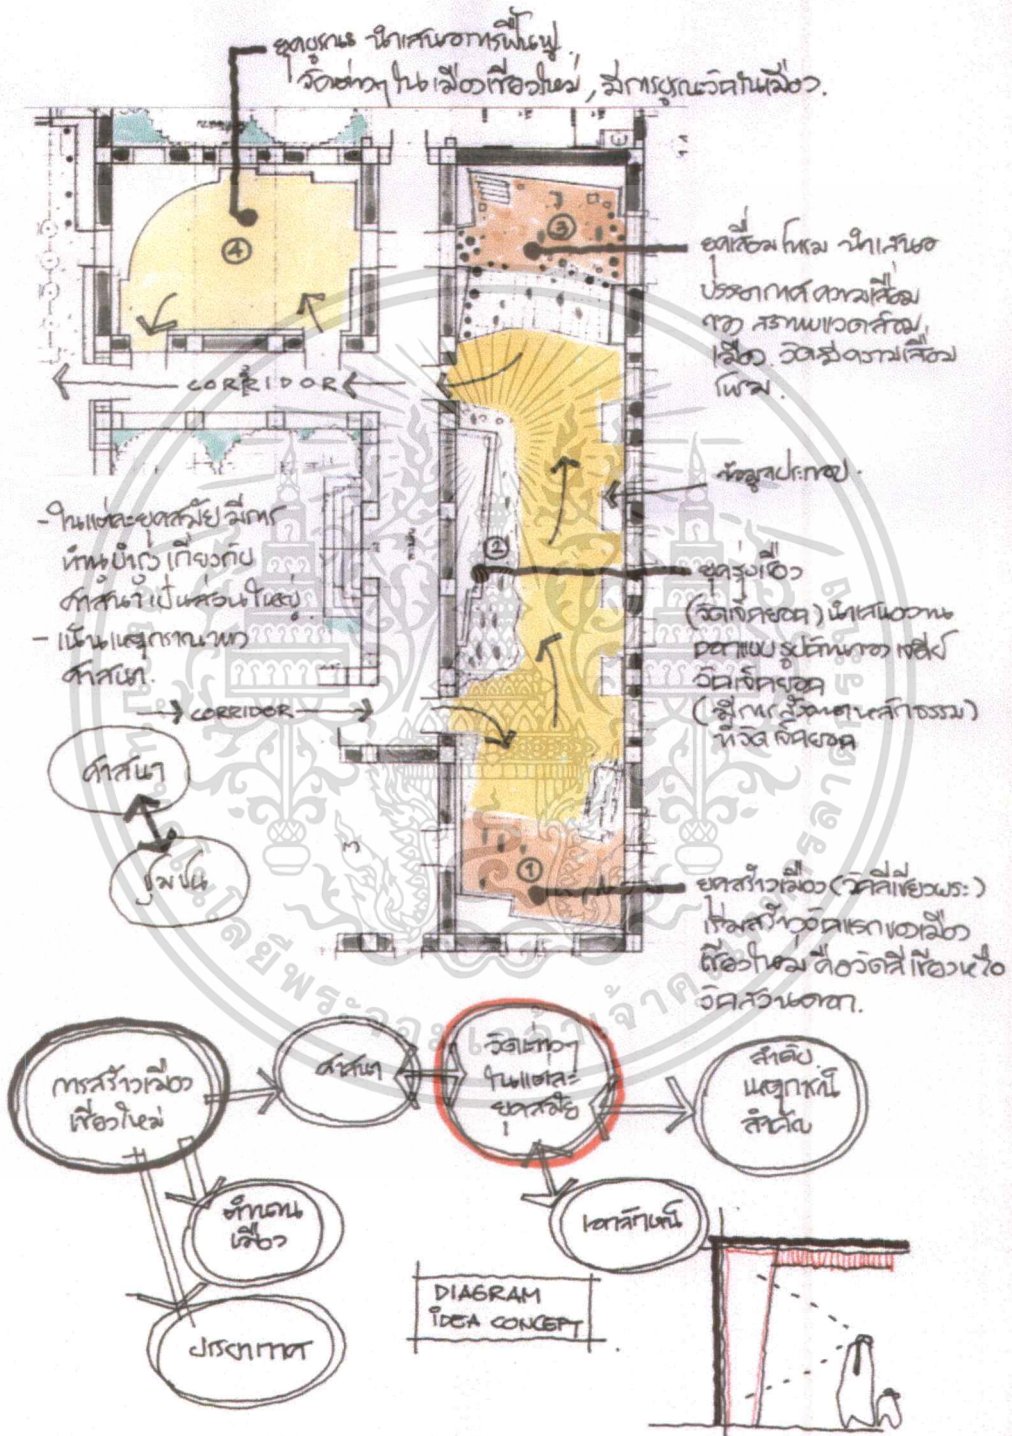 ยุคบูรณะ นำเสนอการฟื้นฟู
วัดต่างๆ ในเมืองเชียงใหม่, มีการบูรณะวัดในเมือง.
④
③
ยุคเสื่อมโทรม นำเสนอ
บรรยากาศความเสื่อม
ของ สภาพแวดล้อม
เมือง. วัด ความเสื่อม
โทรม.
CORRIDOR
ข้อมูลประกอบ.
- ในแต่ละยุคสมัย มีการ
ทำนุบำรุง เกี่ยวกับ
ศาสนา เป็นส่วนใหญ่.
- เน้นเหตุการณ์ทาง
ศาสนา.
②
ยุครุ่งเรือง
(วัดเจ็ดยอด) นำเสนองาน
ออกแบบ รูปด้านของ เจดีย์
วัดเจ็ดยอด
(มีการสังคายนาหลักธรรม)
ที่วัดเจ็ดยอด
CORRIDOR
ศาสนา
ชุมชน
①
ยุคสร้างเมือง (วัดสี่เชียงพระ)
เริ่มสร้างวัดแรกของเมือง
เชียงใหม่ คือวัดสี่เชียงหรือ
วัดสวนดอก.
การสร้างเมือง
เชียงใหม่
ศาสนา
วัดต่างๆ
ในแต่ละ
ยุคสมัย
ลำดับ
เหตุการณ์
สำคัญ
ตำนาน
เมือง
เอกลักษณ์
บรรยากาศ
DIAGRAM
IDEA CONCEPT